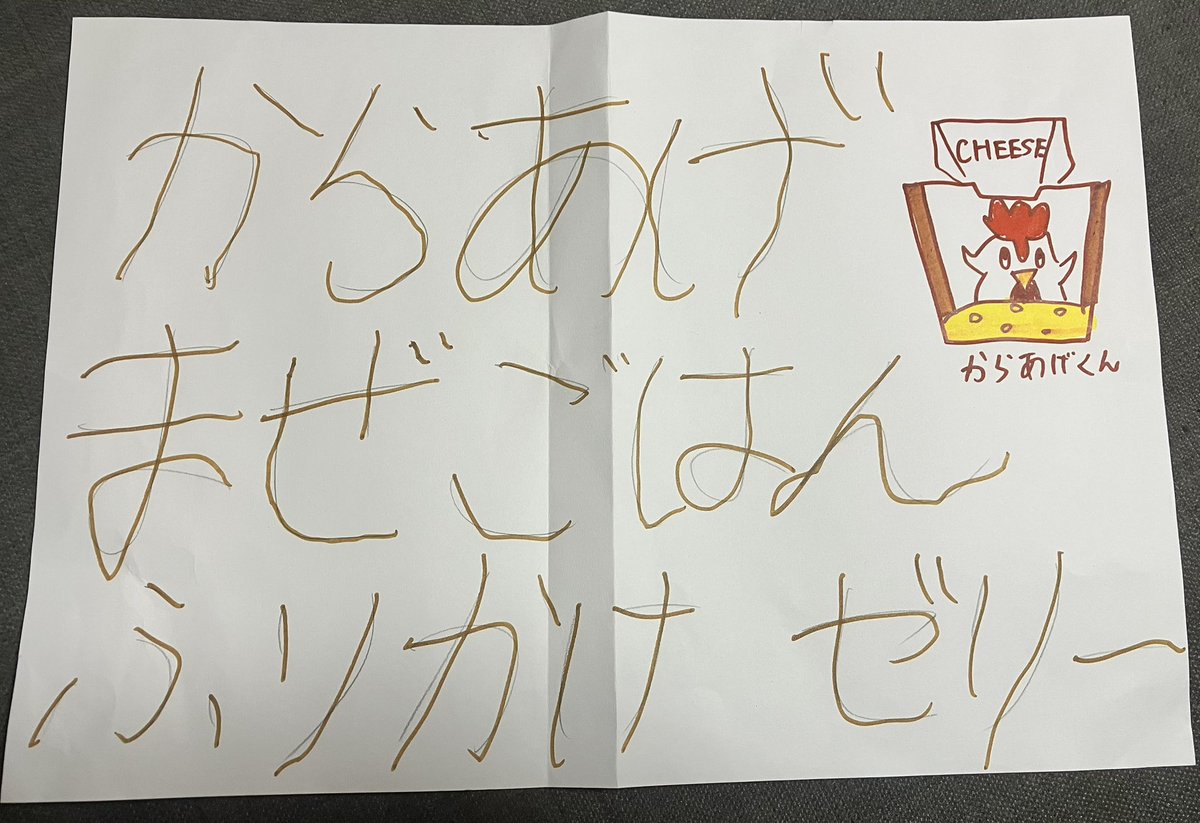 からあげ
CHEESE
からあげくん
まぜごはん
ふりかけ ゼリー